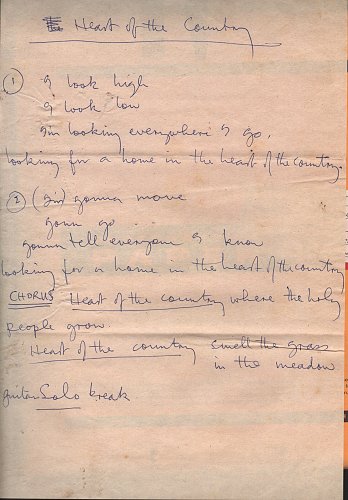 Heart of the Country
① I look high
I look low
I'm looking everywhere I go.
looking for a home in the heart of the country.
② (I'm) gonna move
gonn go
gonna tell everyone I know
looking for a home in the heart of the country
CHORUS Heart of the country where the holy
people grow
Heart of the country smell the grass
in the meadow
guitar Solo break